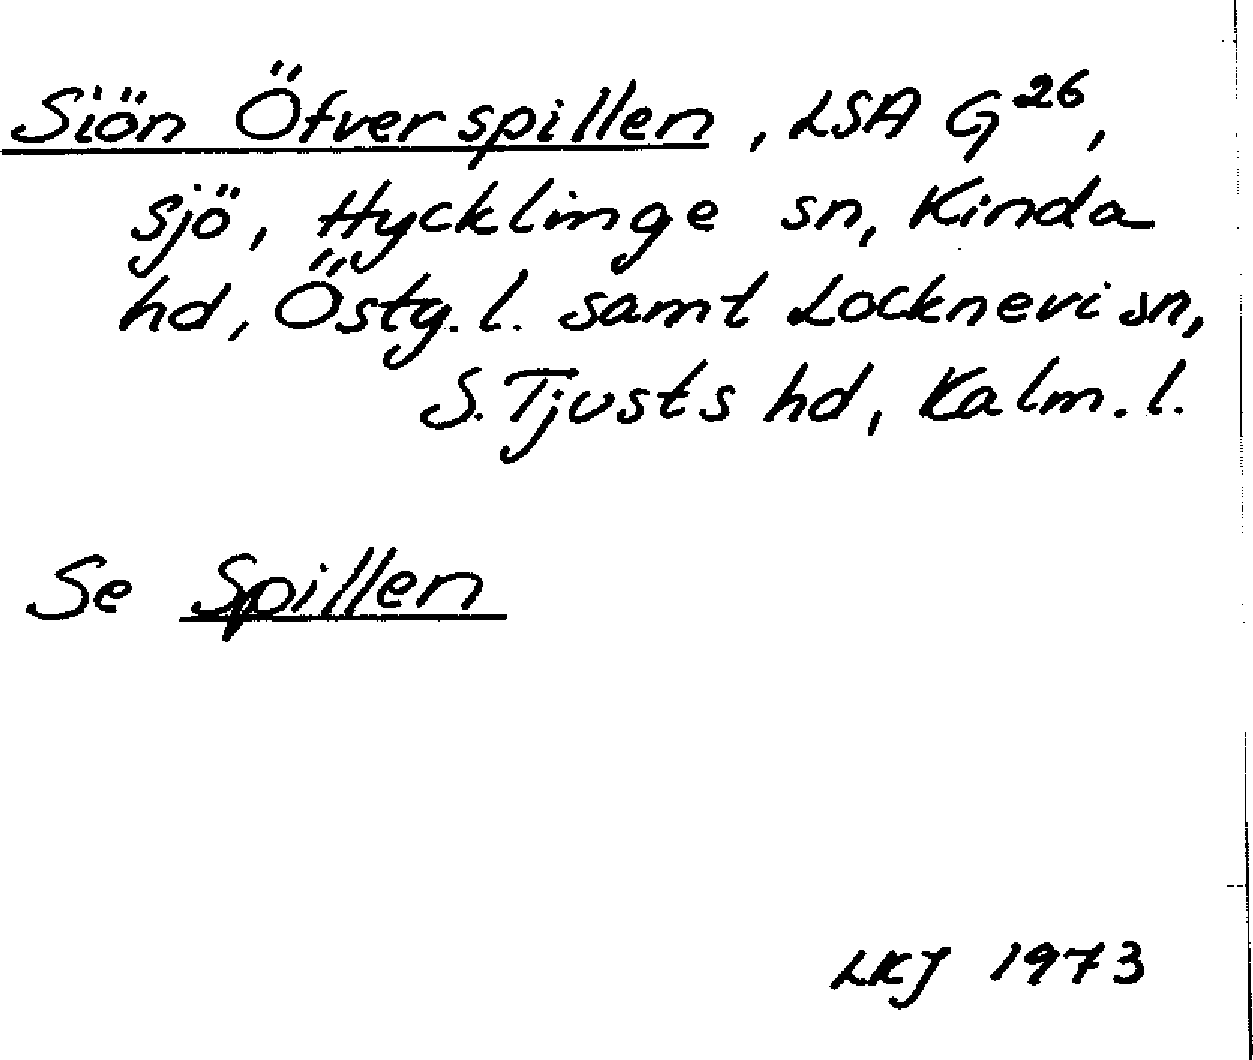 Siön Öfverspillen, LSA G26,
sjö, Hycklinge sn, Kinda
hd, Östg.l. samt Locknevi sn,
S. Tjusts hd, Kalm.l.
Se Spillen
LKJ 1973